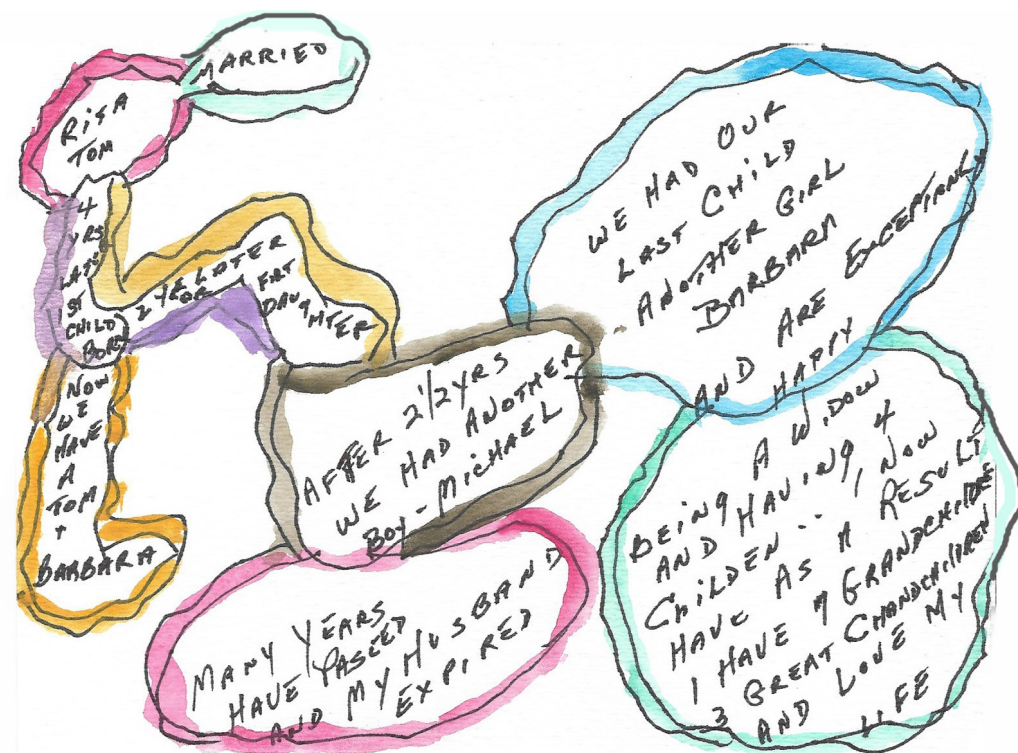 MARRIED
RITA
TOM
4
YRS
LATER
ST
CHILD
BORN
2 YRS LATER
OR
FRT
DAUGHTER
NOW
WE
HAVE
A
TOM
+
BARBARA
AFTER 2 1/2 YRS
WE HAD ANOTHER
BOY - MICHAEL
WE HAD OUR
LAST CHILD
ANOTHER GIRL
BARBARA
AND ARE EXCEPTIANLY
HAPPY
MANY YEARS
HAVE PASSED
AND MY HUSBAND
EXPIRED
BEING A WIDOW
AND HAVING 4
CHILDEN .. , NOW
HAVE AS A RESULT
I HAVE 7 GRANDCHILDRE
3 GREAT CHANDCHILDREN
AND LOVE MY
LIFE